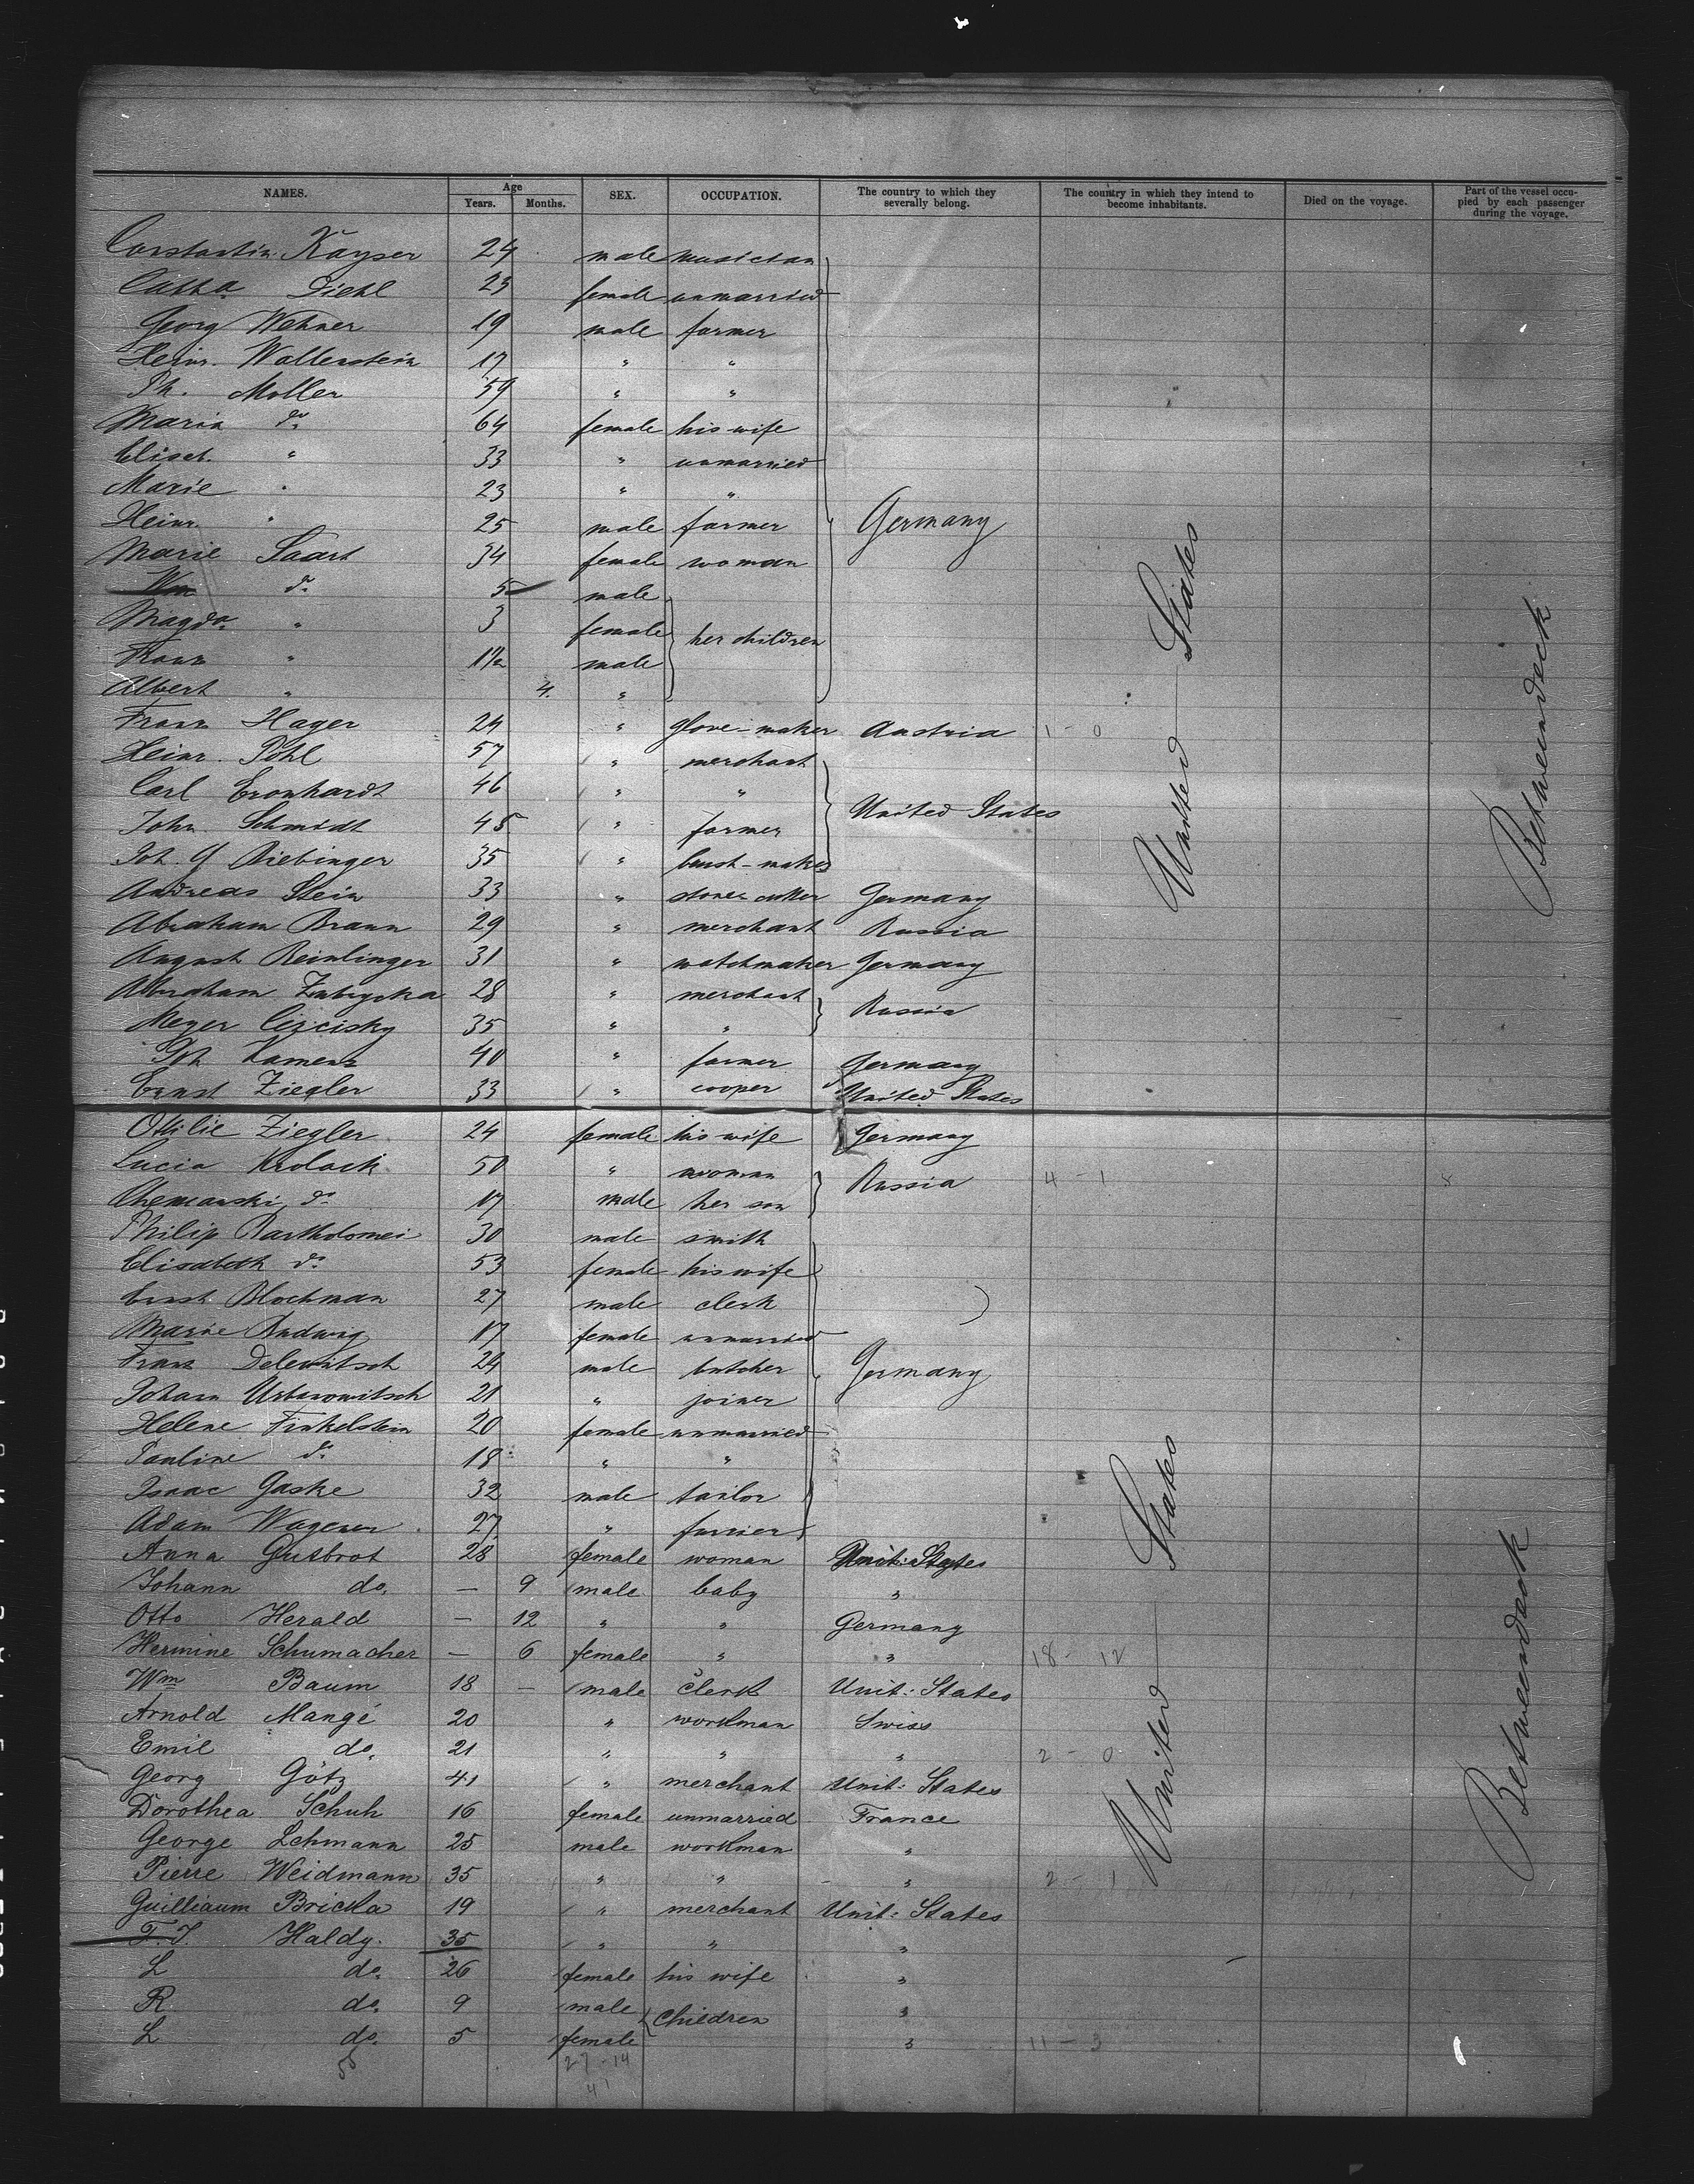 NAMES. Age Years. Months. SEX. OCCUPATION. The country to which they severally belong. The country in which they intend to become inhabitants. Died on the voyage. Part of the vessel occupied by each passenger during the voyage.
Constantin Kayser 24 male musician
Catha Diehl 23 female unmarried
Georg Wehner 19 male farmer
Heinr. Wallenstein 17 " "
Ph. Moller 59 " "
Maria do 64 female his wife
Eliset. " 33 " unmarried
Marie " 23 " "
Heinr. " 25 male farmer Germany
Marie Saart 34 female woman
Wm do 5 male
Magda " 3 female her children
Franz " 1½ male
Albert " 4 "
Franz Hager 24 " glove-maker Austria 1 - 0
Heinr. Pohl 57 " merchant
Carl Eronhardt 46 " "
John Schmidt 45 " farmer United States
Joh. G Biebinger 35 " brush-maker
Andreas Stein 33 " stone-cutter Germany
Abraham Braun 29 " merchant Russia
August Reinlinger 31 " watchmaker Germany
Abraham 28 " merchant Russia
Meyer 35 " "
Joh Kamenz 40 " farmer Germany
Ernst Ziegler 33 " cooper United States
United States
Betweendeck
Ottilie Ziegler 24 female his wife Germany
Lucia Krolack 50 " woman Russia 4 - 1
do 17 male her son
Philip Bartholomei 30 male smith
Elisabeth do 53 female his wife
Ernst Blochman 27 male clerk
Marie Ludwig 17 female unmarried
Franz Delewitsch 24 male butcher Germany
Johann Urbanowitsch 21 " joiner
Helene Finkelstein 20 female unmarried
Pauline do 18 " "
Isaac Gaske 32 male tailor
Adam Wagener 27 " furrier
Anna Gutbrot 28 female woman Unit: States
Johann do. — 9 male baby "
Otto Herald — 12 " " Germany
Hermine Schumacher — 6 female " " 18 - 12
Wm Baum 18 — male clerk Unit: States
Arnold Mangé 20 " workman Swiss
Emil do. 21 " " " 2 - 0
Georg Götz 41 " merchant Unit: States
Dorothea Schuh 16 female unmarried France
George Lehmann 25 male workman "
Pierre Weidmann 35 " " " 2 - 1
Guilliaum Bricka 19 " merchant Unit: States
F. J. Haldy. 35 " " "
L do. 26 female his wife "
R do. 9 male children "
L do. 5 female " 11 - 3
United States
Betweendeck
50 27-14
41